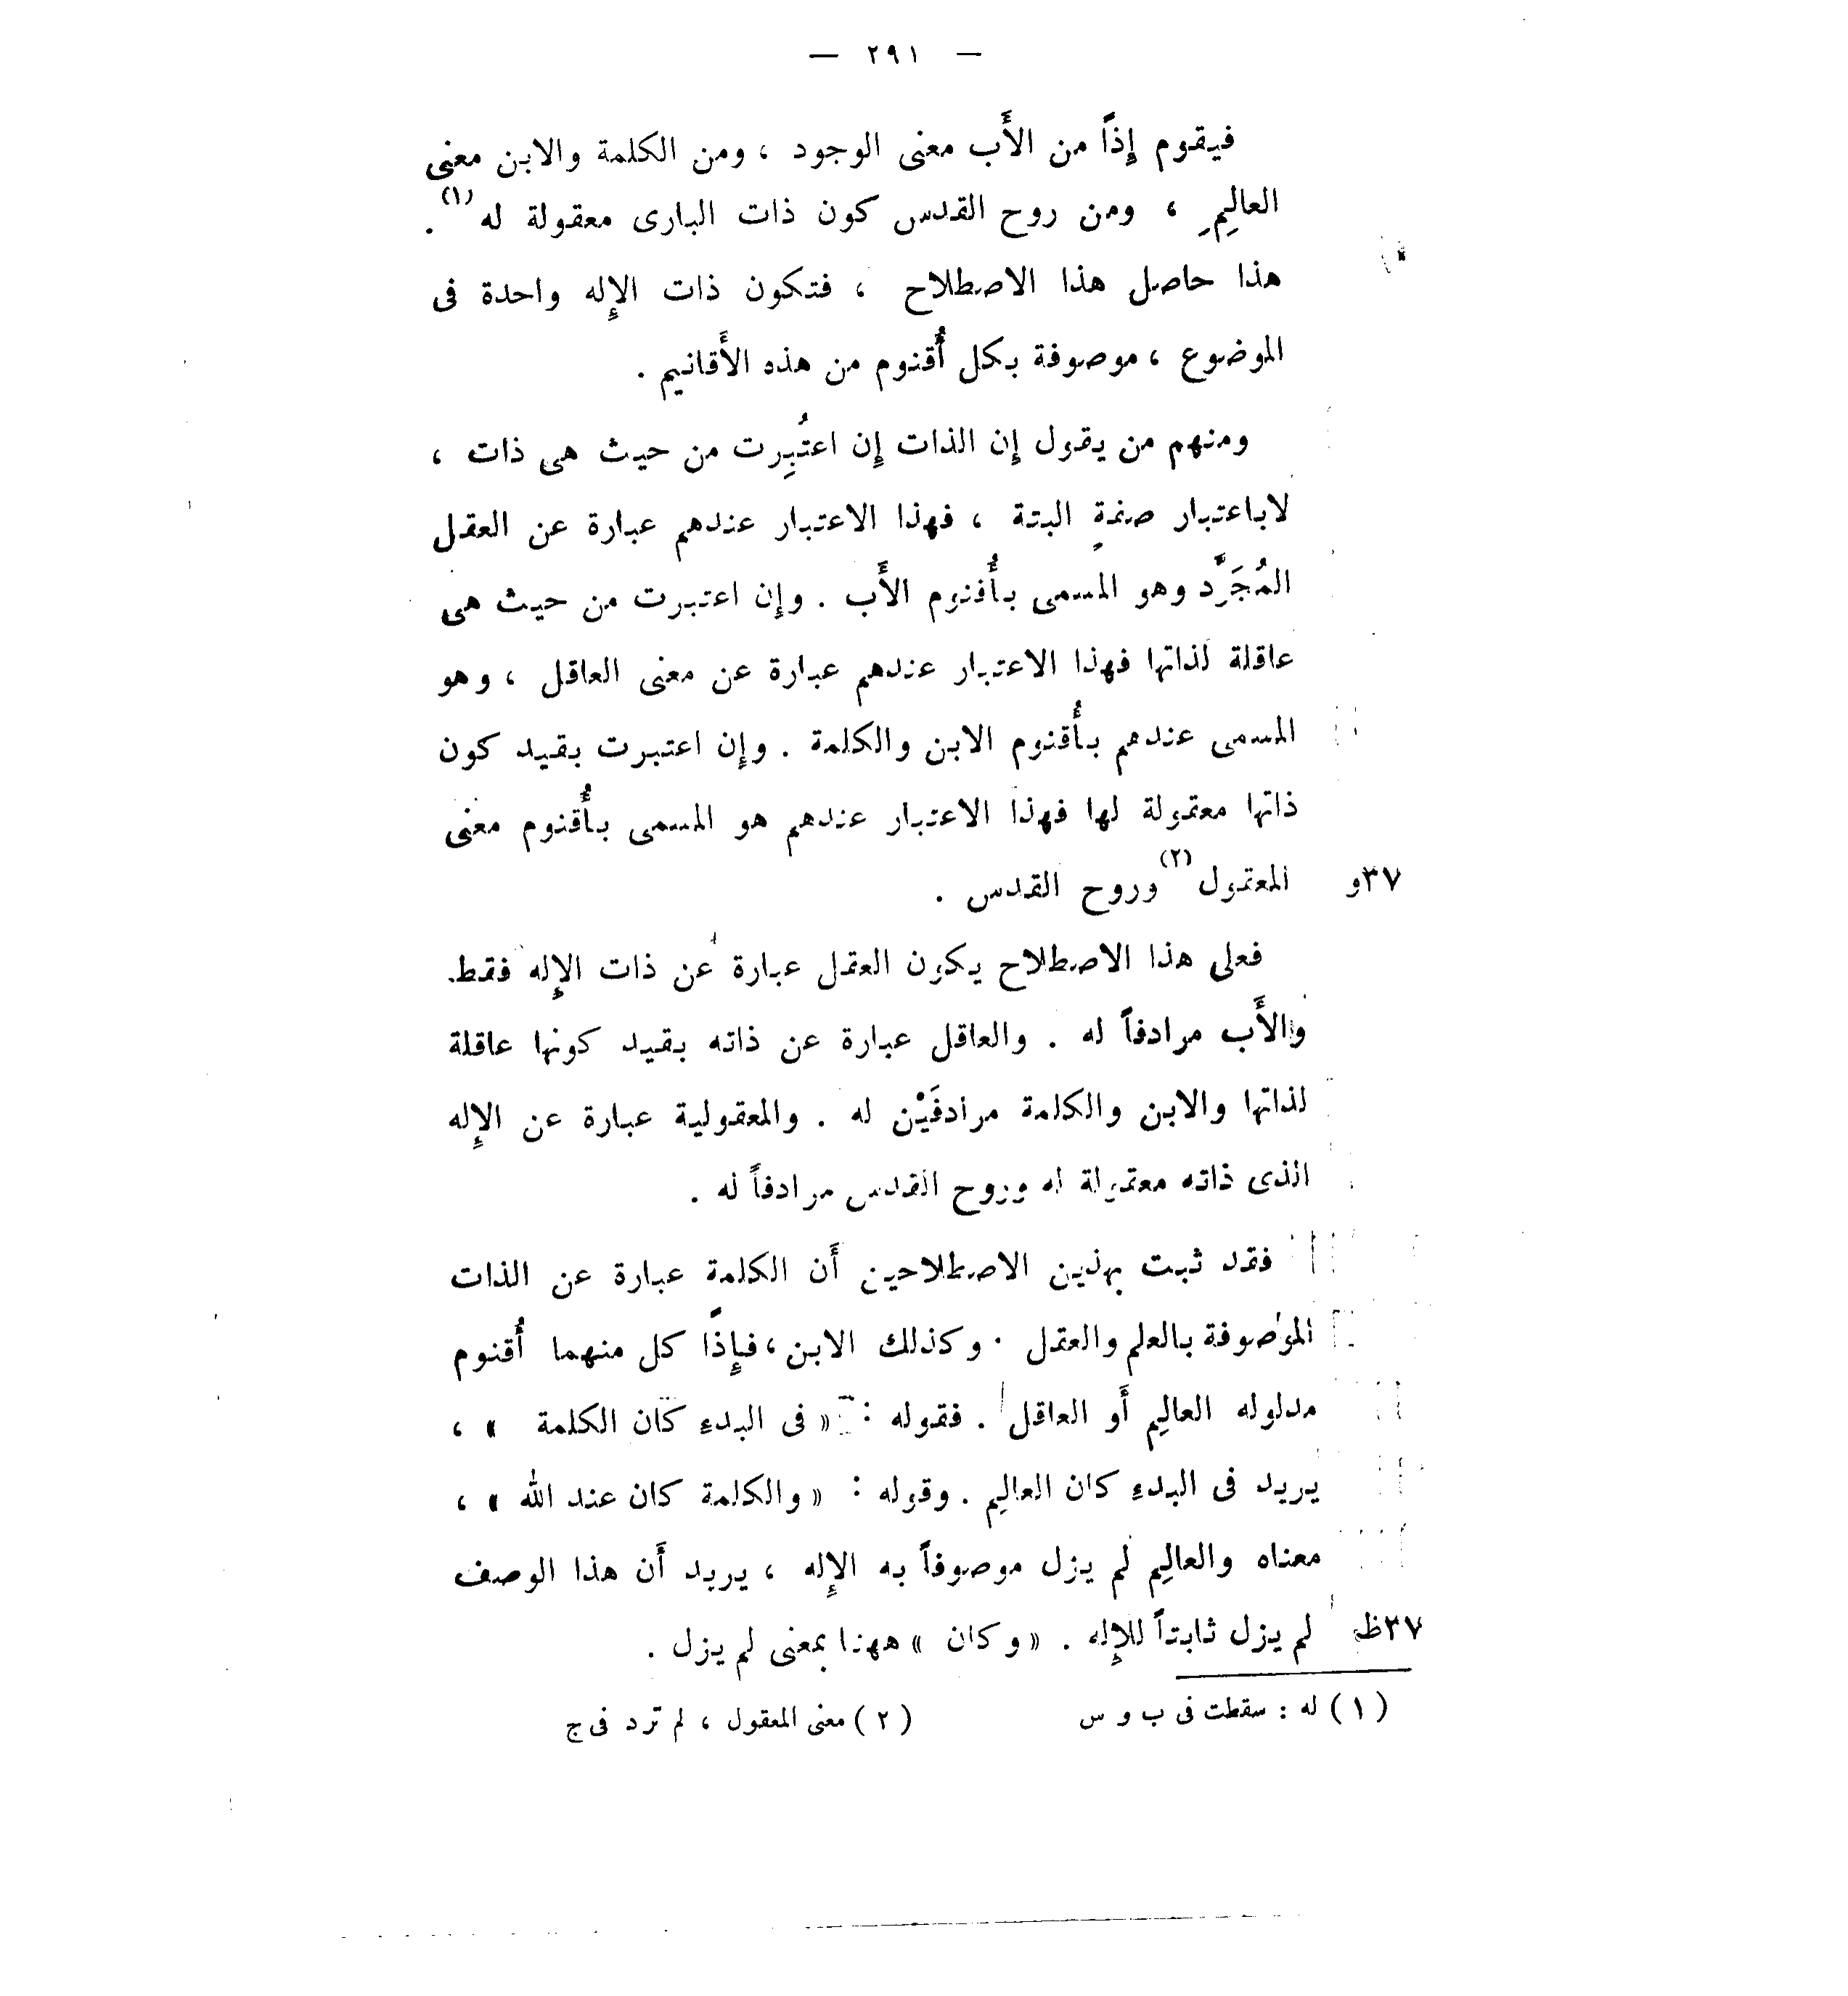 — ٢٩١ —
فيقوم إِذاً من الأَب معنى الوجود ، ومن الكلمة والابن معنى
العالِمِ ، ومن روح القدس كون ذات البارى معقولة له (١) .
هذا حاصل هذا الاصطلاح ، فتكون ذات الإِله واحدة فى
الموضوع ، موصوفة بكل أُقنوم من هذه الأَقانيم .
ومنهم من يقول إِن الذات إِن اعتُبِرت من حيث هى ذات ،
لا باعتبار صفةٍ البتة ، فهذا الاعتبار عندهم عبارة عن العقل
المُجَرَّد وهو المسمى بأُقنوم الأَب . وإِن اعتبرت من حيث هى
عاقلة لذاتها فهذا الاعتبار عندهم عبارة عن معنى العاقل ، وهو
المسمى عندهم بأُقنوم الابن والكلمة . وإِن اعتبرت بقيد كون
ذاتها معقولة لها فهذا الاعتبار عندهم هو المسمى بأُقنوم معنى
٣٧و المعقول (٢) وروح القدس .
فعلى هذا الاصطلاح يكون العقل عبارة عن ذات الإِله فقط
والأَب مرادفاً له . والعاقل عبارة عن ذاته بقيد كونها عاقلة
لذاتها والابن والكلمة مرادفَيْن له . والمعقولية عبارة عن الإِله
الذى ذاته معقولة له وروح القدس مرادفاً له .
فقد ثبت بهذين الاصطلاحين أَن الكلمة عبارة عن الذات
الموصوفة بالعلم والعقل . وكذلك الابن ، فإِذًا كل منهما أُقنوم
مدلوله العالِم أَو العاقل . فقوله : « فى البدءِ كان الكلمة » ،
يريد فى البدءِ كان العالِم . وقوله : « والكلمة كان عند الله » ،
معناه والعالِم لم يزل موصوفاً به الإِله ، يريد أَن هذا الوصف
٣٧ظ لم يزل ثابتاً للإِله . « وكان » ههنا بمعنى لم يزل .
(١) له : سقطت فى ب و س (٢) معنى المعقول ، لم ترد فى ج